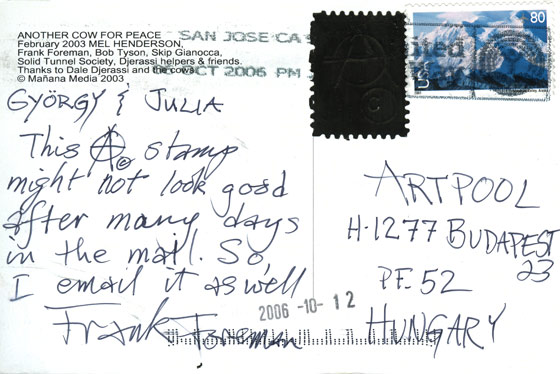 ANOTHER COW FOR PEACE
February 2003 MEL HENDERSON,
Frank Foreman, Bob Tyson, Skip Gianocca,
Solid Tunnel Society, Djerassi helpers & friends.
Thanks to Dale Djerassi and the cows
© Mañana Media 2003
SAN JOSE CA
OCT 2006 PM
A
©
80
USA
GYÖRGY & JULIA
This A© stamp
might not look good
after many days
in the mail. So,
I email it as well
Frank Foreman
2006-10-12
ARTPOOL
H-1277 BUDAPEST
23
PF. 52
HUNGARY